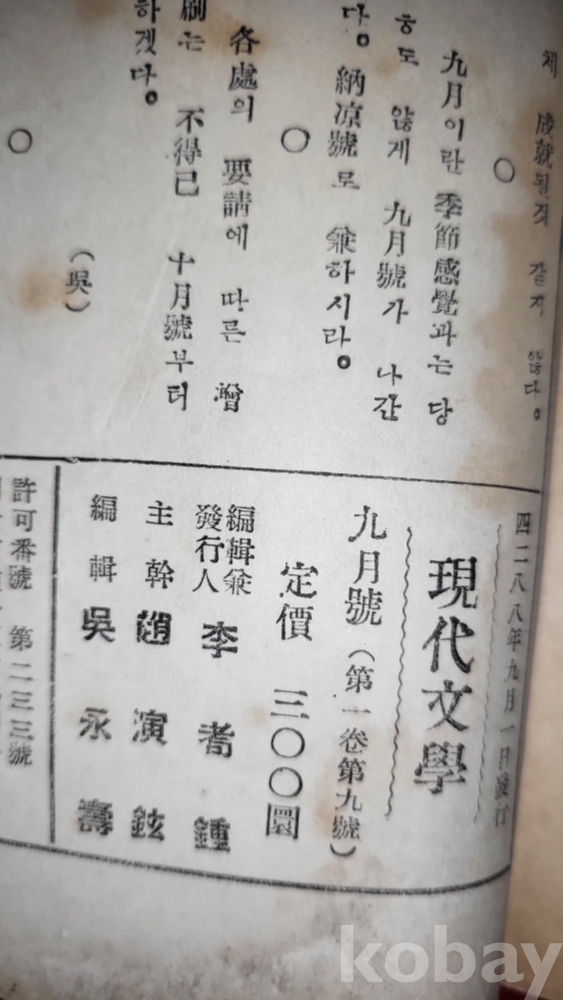 체 成就될것 같지 않다。
○
九月이란 季節感覺과는 당
ㅎ도 않게 九月號가 나간
다。 納凉號로 兼하시라。
○
各處의 要請에 따른 增
刷는 不得已 十月號부터
하겠다。
○
(吳)
四二八八年九月一日發行
現代文學
九月號(第一卷第九號)
定價 三〇〇圜
編輯兼
發行人 李耈鍾
主幹 趙演鉉
編輯 吳永壽
許可番號 第二三三號
kobay